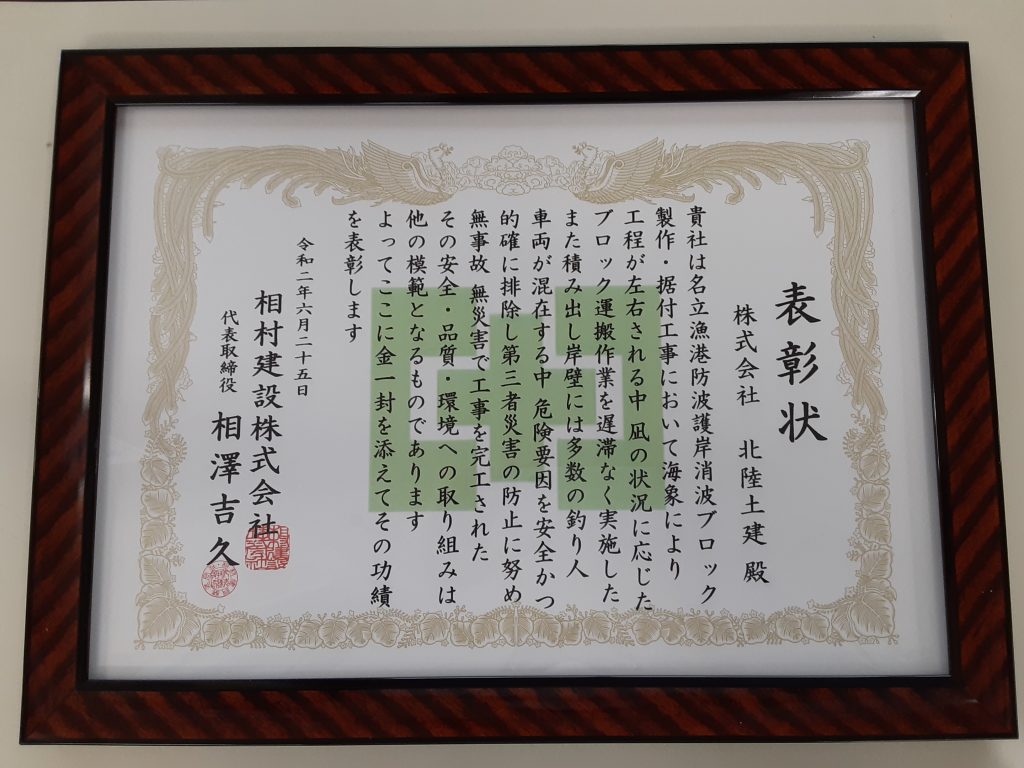 表彰状
株式会社 北陸土建 殿
貴社は名立漁港防波護岸消波ブロック
製作・据付工事において海象により
工程が左右される中 凪の状況に応じた
ブロック運搬作業を遅滞なく実施した
また積み出し岸壁には多数の釣り人
車両が混在する中 危険要因を安全かつ
的確に排除し第三者災害の防止に努め
無事故 無災害で工事を完工された
その安全・品質・環境への取り組みは
他の模範となるものであります
よってここに金一封を添えてその功績
を表彰します
令和二年六月二十五日
相村建設株式会社
代表取締役 相澤吉久